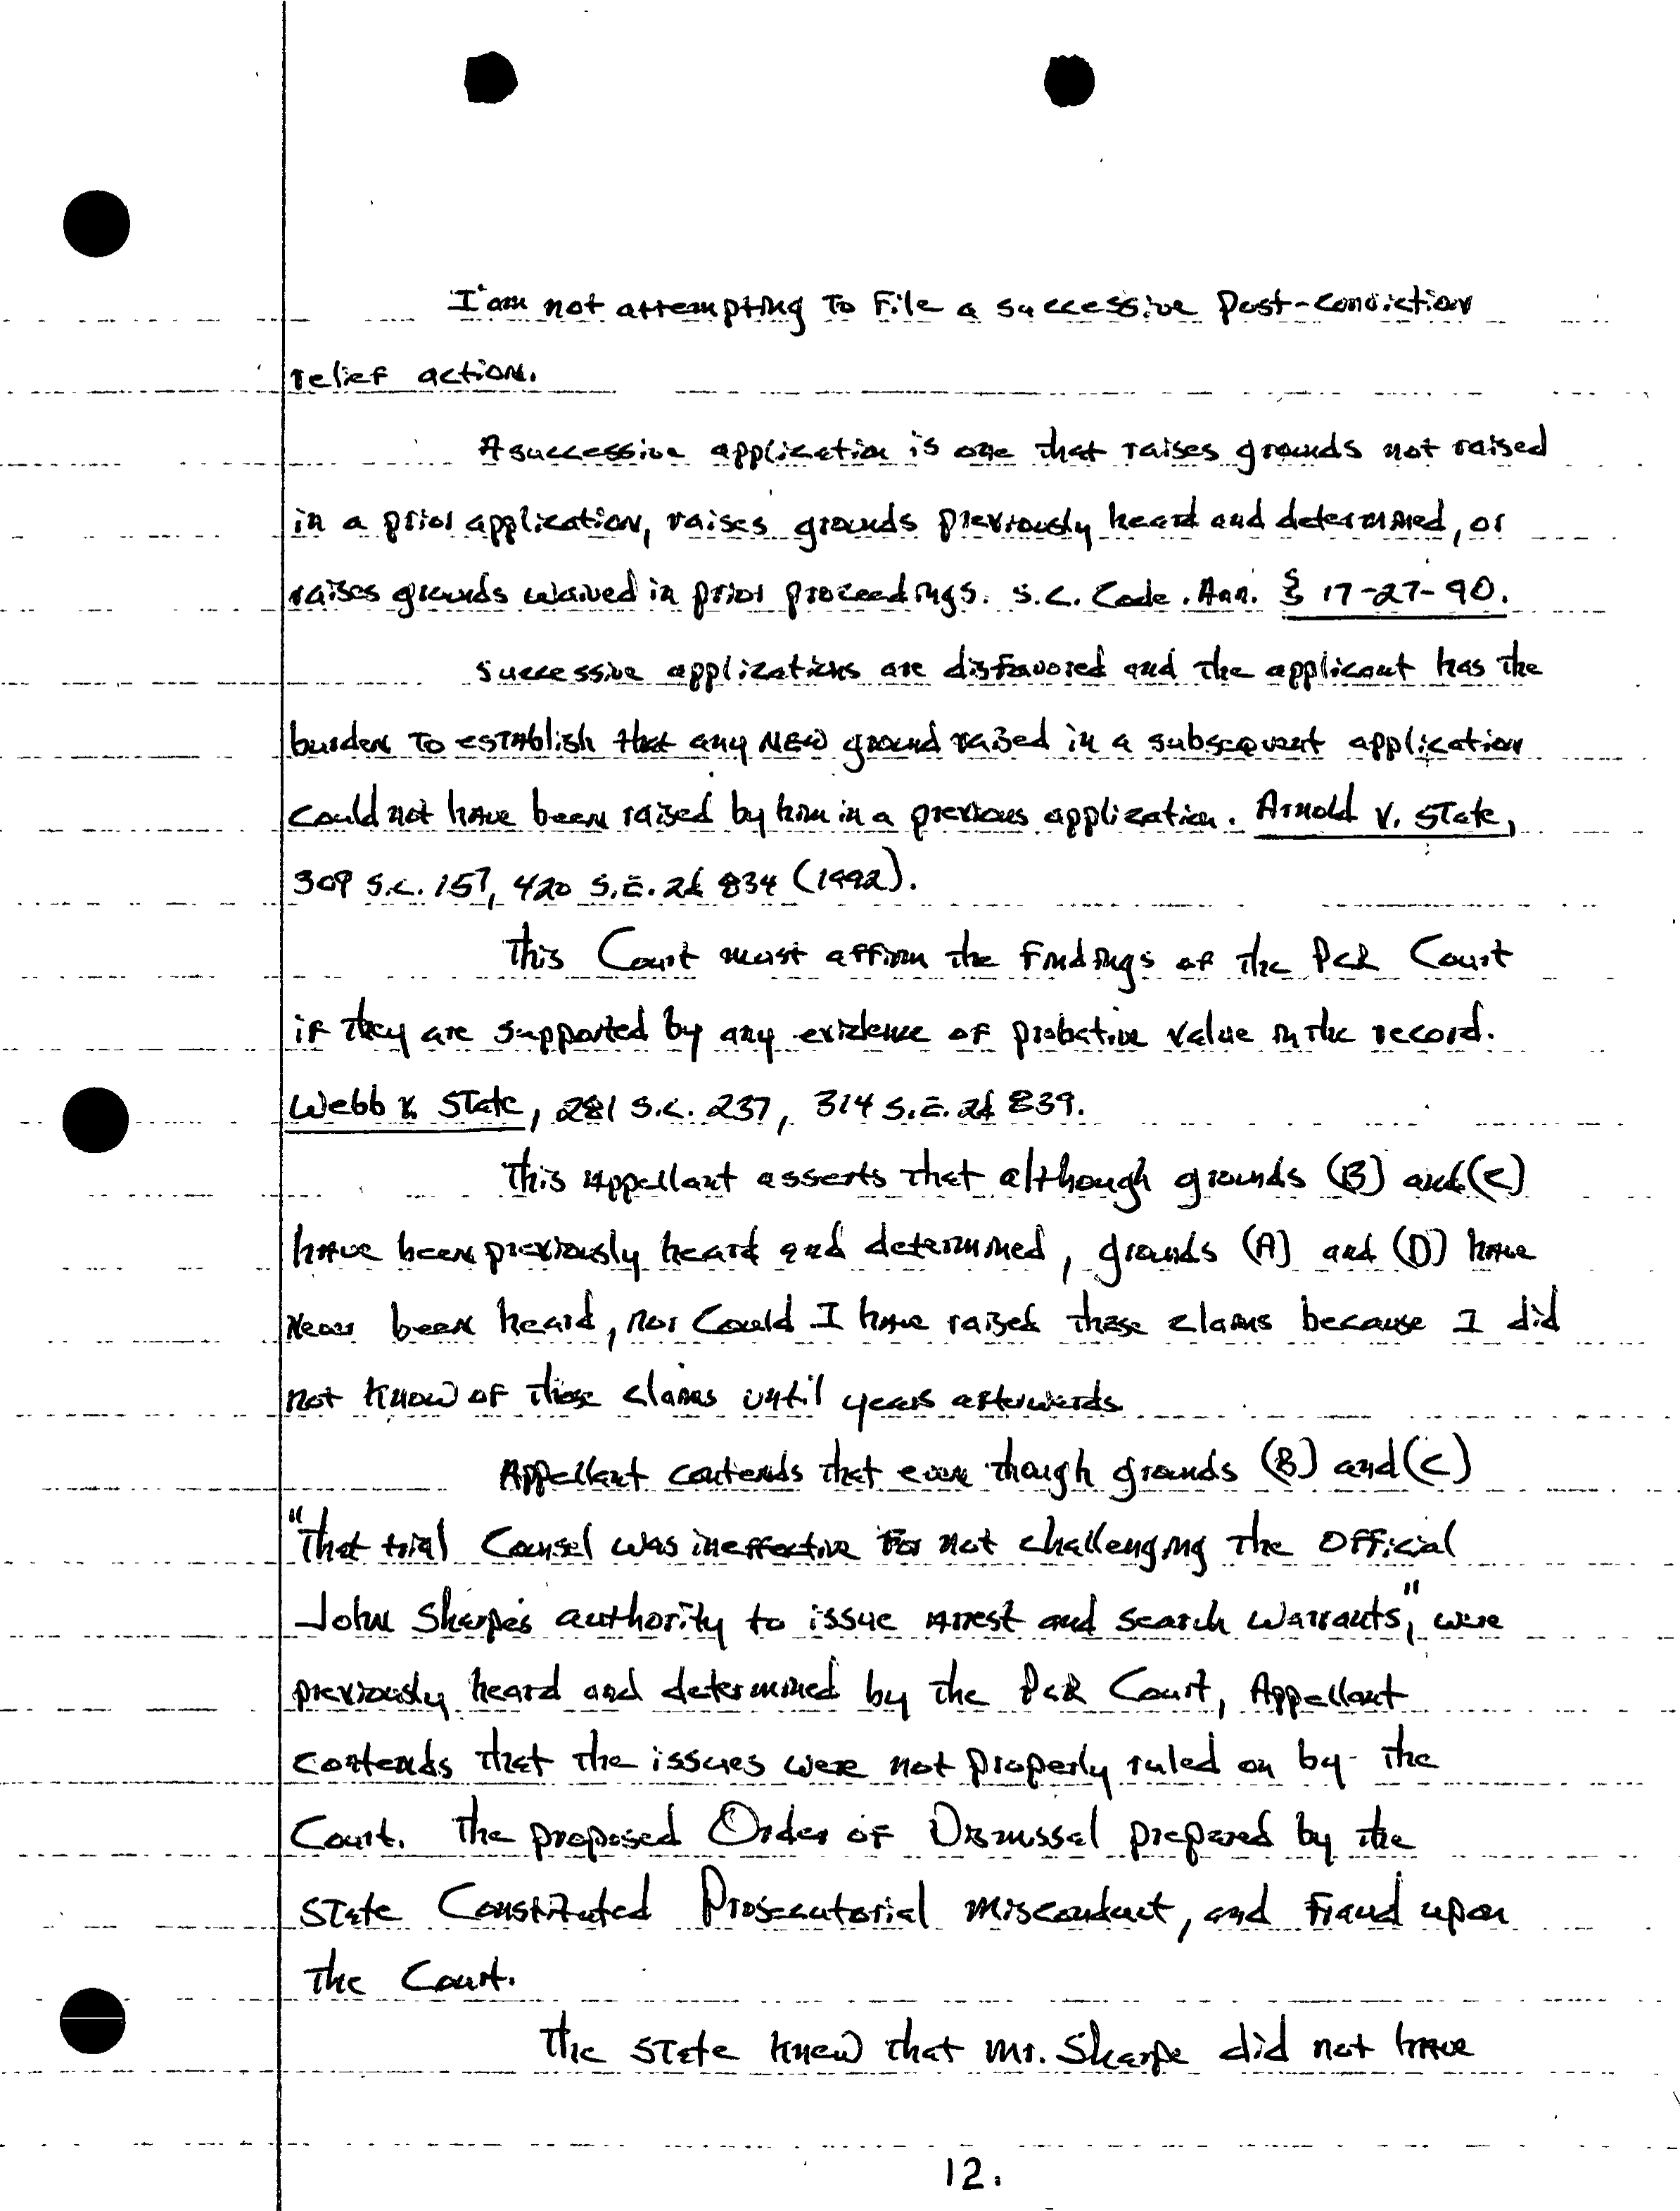 I am not attempting To File a successive Post-conviction
relief action.
A successive application is one that raises grounds not raised
in a prior application, raises grounds previously heard and determined, or
raises grounds waived in prior proceedings. S.C. Code. Ann. § 17-27-90.
Successive applications are disfavored and the applicant has the
burden To establish that any NEW ground raised in a subsequent application
could not have been raised by him in a previous application. Arnold v. State,
309 S.C. 157, 420 S.E.2d 834 (1992).
This Court must affirm the Findings of the PCR Court
if they are supported by any evidence of probative value in the record.
Webb v. State, 281 S.C. 237, 314 S.E.2d 839.
This Appellant asserts that although grounds (B) and (C)
have been previously heard and determined, grounds (A) and (D) have
never been heard, nor Could I have raised these claims because I did
not know of those claims until years afterwards.
Appellant contends that even though grounds (B) and (C)
"That trial Counsel was ineffective For not challenging the Official
John Sharpe's authority to issue Arrest and search warrants," were
previously heard and determined by the PCR Court, Appellant
contends that the issues were not properly ruled on by the
Court. The proposed Order of Dismissal prepared by the
State Constituted Prosecutorial misconduct, and Fraud upon
The Court.
The State knew that Mr. Sharpe did not have
12.